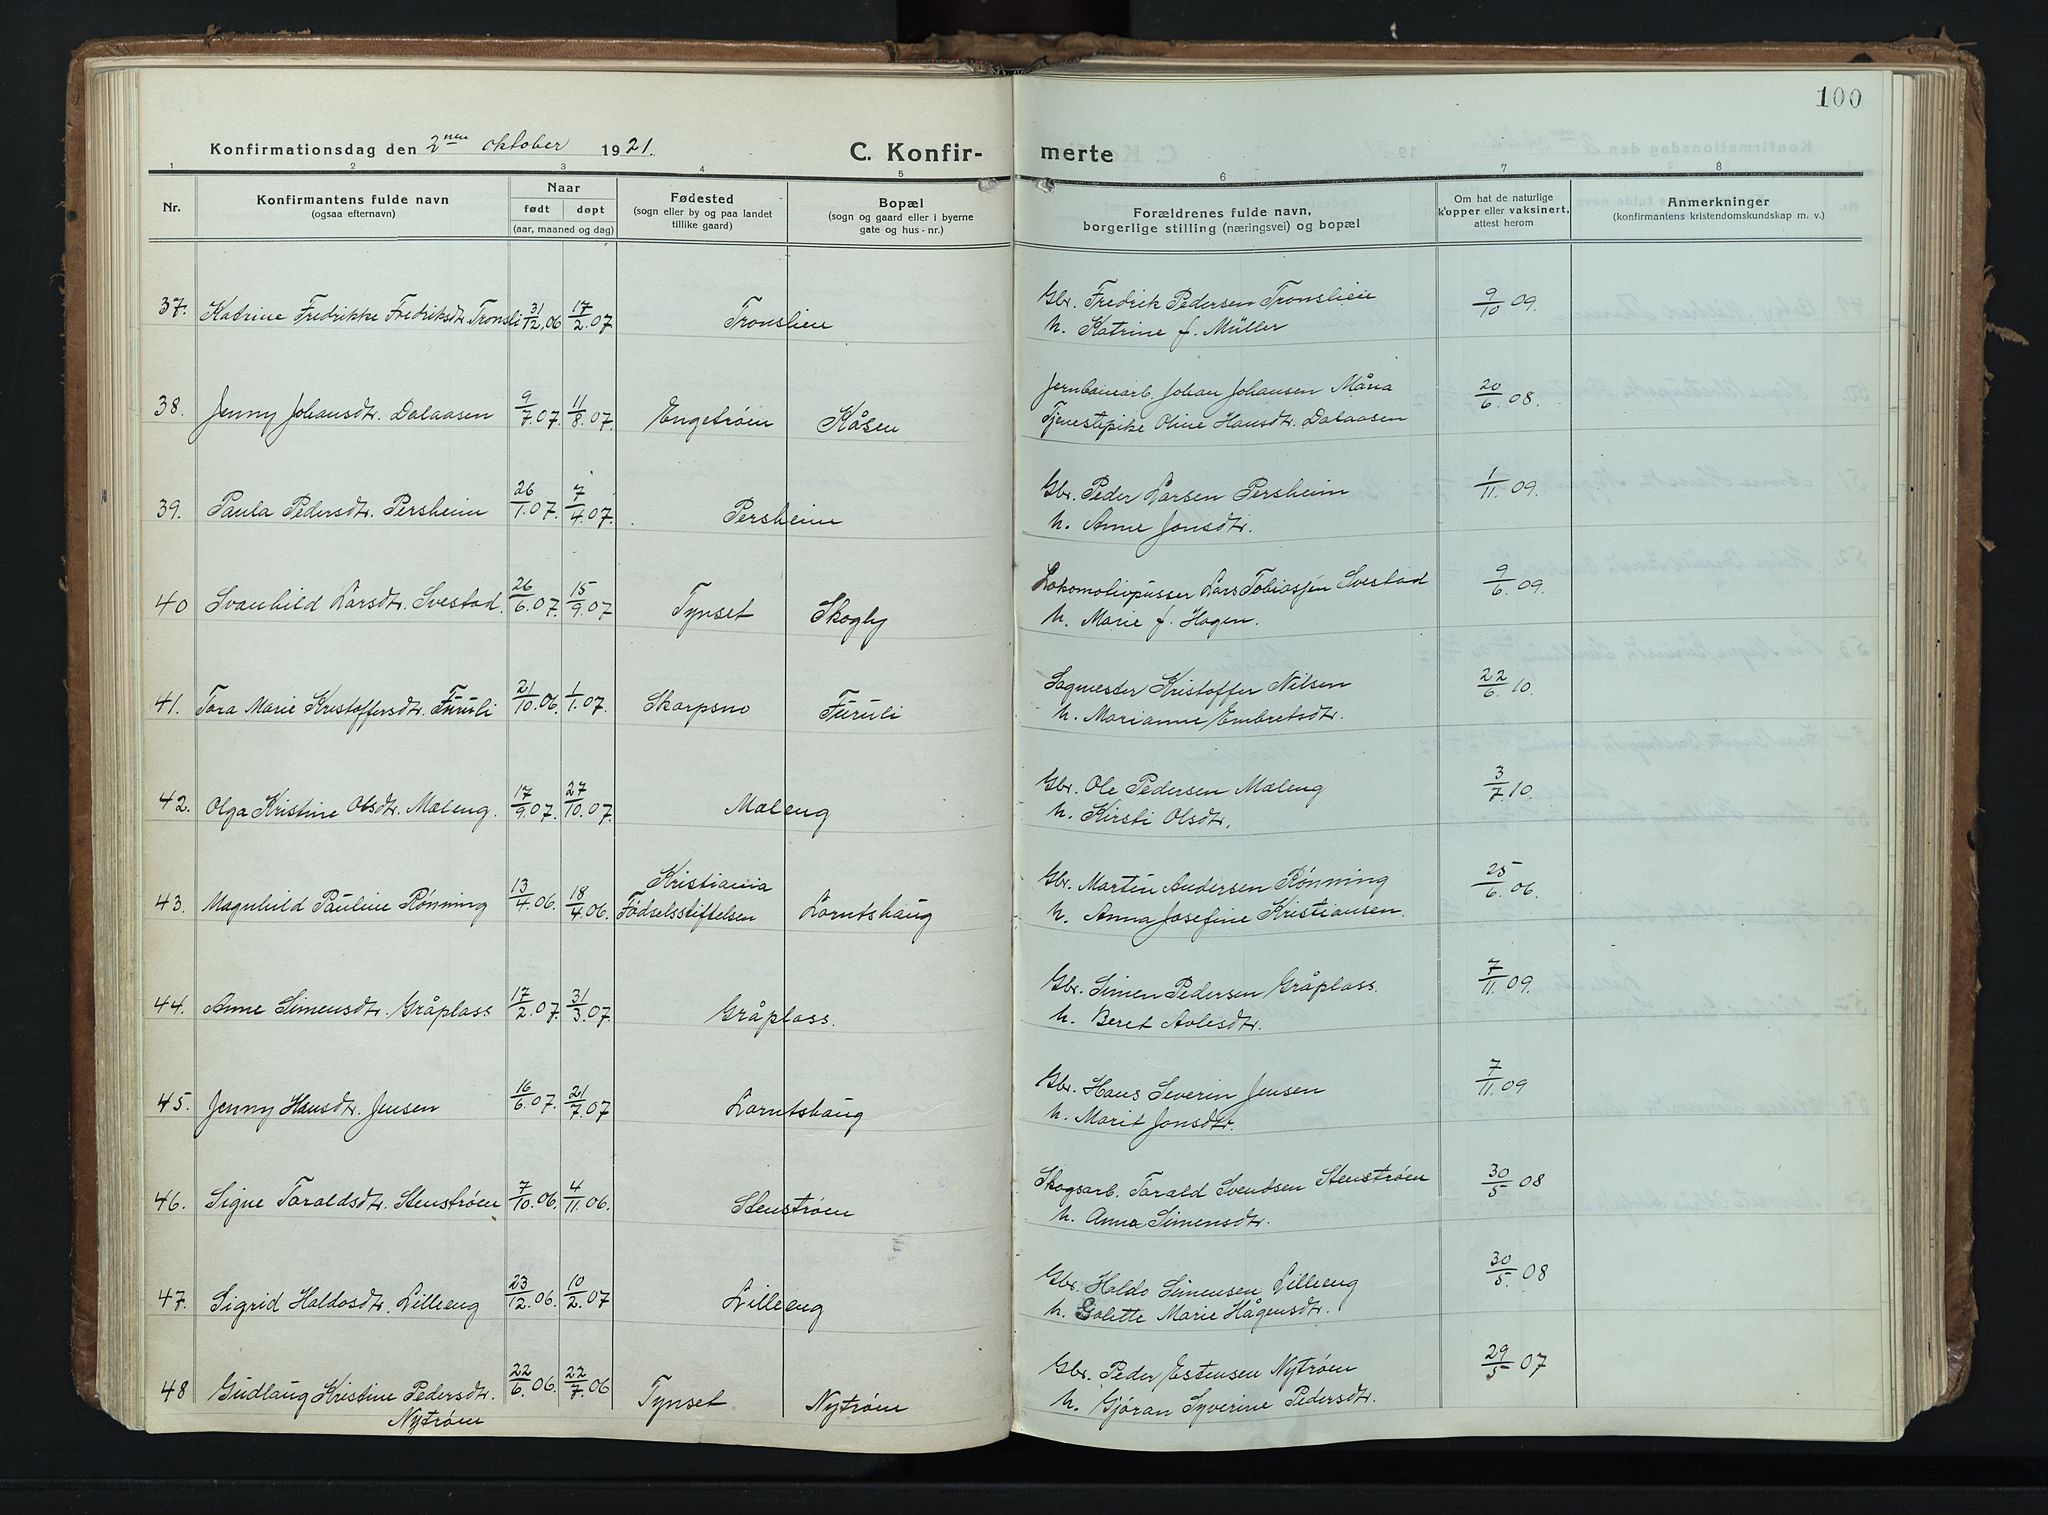 100
Konfirmationsdag den 2nen oktober 1921. C. Konfir- merte
1 2 3 4 5 6 7 8
Nr. Konfirmantens fulde navn (ogsaa efternavn) Naar født døpt (aar, maaned og dag) Fødested (sogn eller by og paa landet tillike gaard) Bopæl (sogn og gaard eller i byerne gate og hus-nr.) Forældrenes fulde navn, borgerlige stilling (næringsvei) og bopæl Om hat de naturlige kopper eller vaksinert, attest herom Anmerkninger (konfirmantens kristendomskundskap m. v.)
37. Katrine Fredrikke Fredriksdtr. Tronsli 31/12.06 17/2.07 Tronslien Gbr. Fredrik Pedersen Tronslien 9/10 09.
h. Katrine f. Müller
38. Jenny Johansdtr. Dalaasen 9/7.07 11/8.07. Engetrøen Kåsen Jernbanearb. Johan Johansen Måna 20/6.08.
Tjenestepike Oline Hansdtr. Dalaasen
39. Paula Pedersdtr. Persheim 26/1.07. 7/4.07. Persheim Gbr. Peder Larsen Persheim 1/11.09.
h. Anne Jonsdtr.
40 Svanhild Larsdtr. Svestad. 26/6.07. 15/9.07 Tynset Skogly Lokomotivpusser Lars Tobiassen Svestad 9/6.09.
h. Marie f. Hagen.
41. Tora Marie Kristoffersdtr. Furuli 21/10.06. 1/1.07. Skarpsno Furuli Sagmester Kristoffer Nilsen 22/6.10.
h. Marianne Embretsdtr.
42. Olga Kristine Olsdtr. Mæleng. 17/9.07. 27/10.07. Mæleng Gbr. Ole Pedersen Mæleng 3/7.10.
h. Kirsti Olsdtr.
43. Magnhild Pauline Rønning 13/4.06. 18/4.06. Kristiania Fødselsstiftelsen Lorntshaug Gbr. Martin Andersen Rønning 25/6.06.
h. Anna Josefine Kristiansen.
44. Anne Simensdtr. Gråplass 17/2.07. 31/3.07. Gråplass. Gbr. Simen Pedersen Gråplass. 7/11.09.
h. Beret Avlesdtr.
45. Jenny Hansdtr. Jensen 16/6.07. 21/7.07 Lorntshaug Gbr. Hans Severin Jensen 7/11.09
h. Marit Jonsdtr.
46. Signe Toraldsdtr. Stenstrøen 7/10.06. 4/11.06. Stenstrøen Skogsarb. Torald Svendsen Stenstrøen 30/5 08
h. Anna Simensdtr.
47. Sigrid Haldosdtr. Lilleeng 23/12.06. 10/2.07 Lilleeng Gbr. Haldo Simensen Lilleeng 30/5. 08
h. Golette Marie Hågensdtr.
48 Gudlaug Kristine Pedersdtr. 22/6.06. 22/7.06 Tynset Nytrøen Gbr. Peder Estensen Nytrøen 29/5 07
Nytrøen h. Gjøran Syverine Pedersdtr.